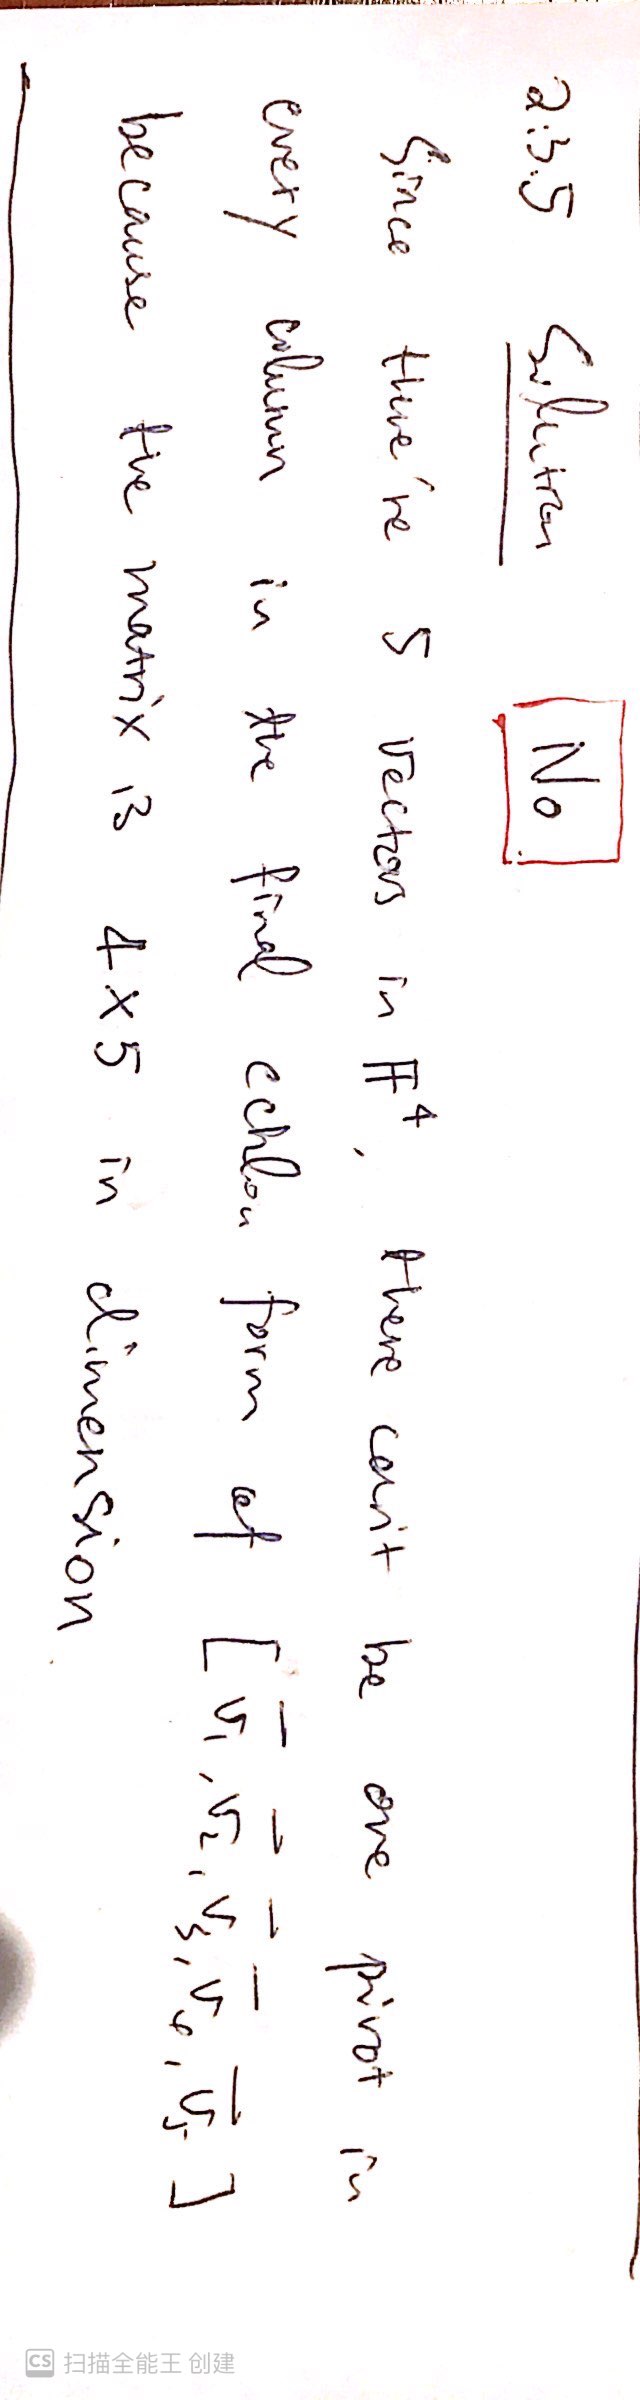 2.3.5 Solution No
Since there're 5 vectors in 𝔽⁴, there can't be one pivot in
every column in the final echlon form of [v̄₁, v̄₂, v̄₃, v̄₄, v̄₅]
because the matrix is 4×5 in dimension
CS 扫描全能王 创建